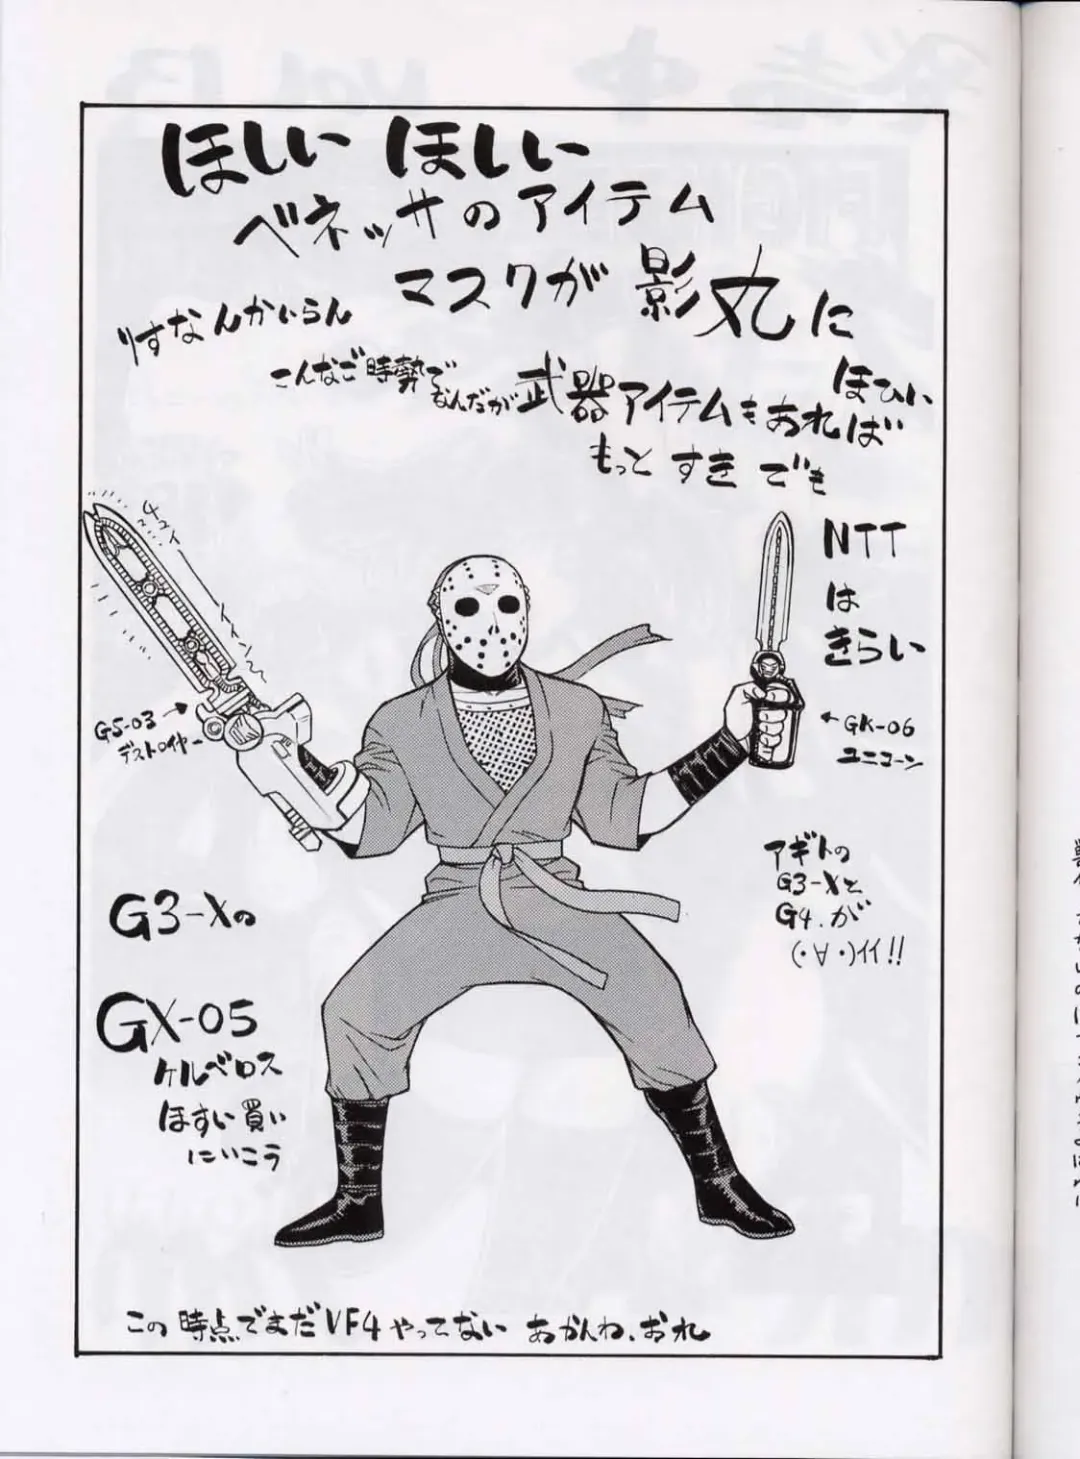 ほしい ほしい
ベネッサのアイテム
マスクが 影丸に
ほひい
りすなんかいらん
こんなご時勢で
なんだが武器アイテムもあれば
もっと すき でも
NTT
は
きらい
チュイ
イイン
GS-03
デストロイヤー
GK-06
ユニコーン
アギトの
G3-Xと
G4.が
(・∀・)イイ!!
G3-Xの
GX-05
ケルベロス
ほすい 買い
にいこう
この時点でまだVF4やってない あかんね、おれ